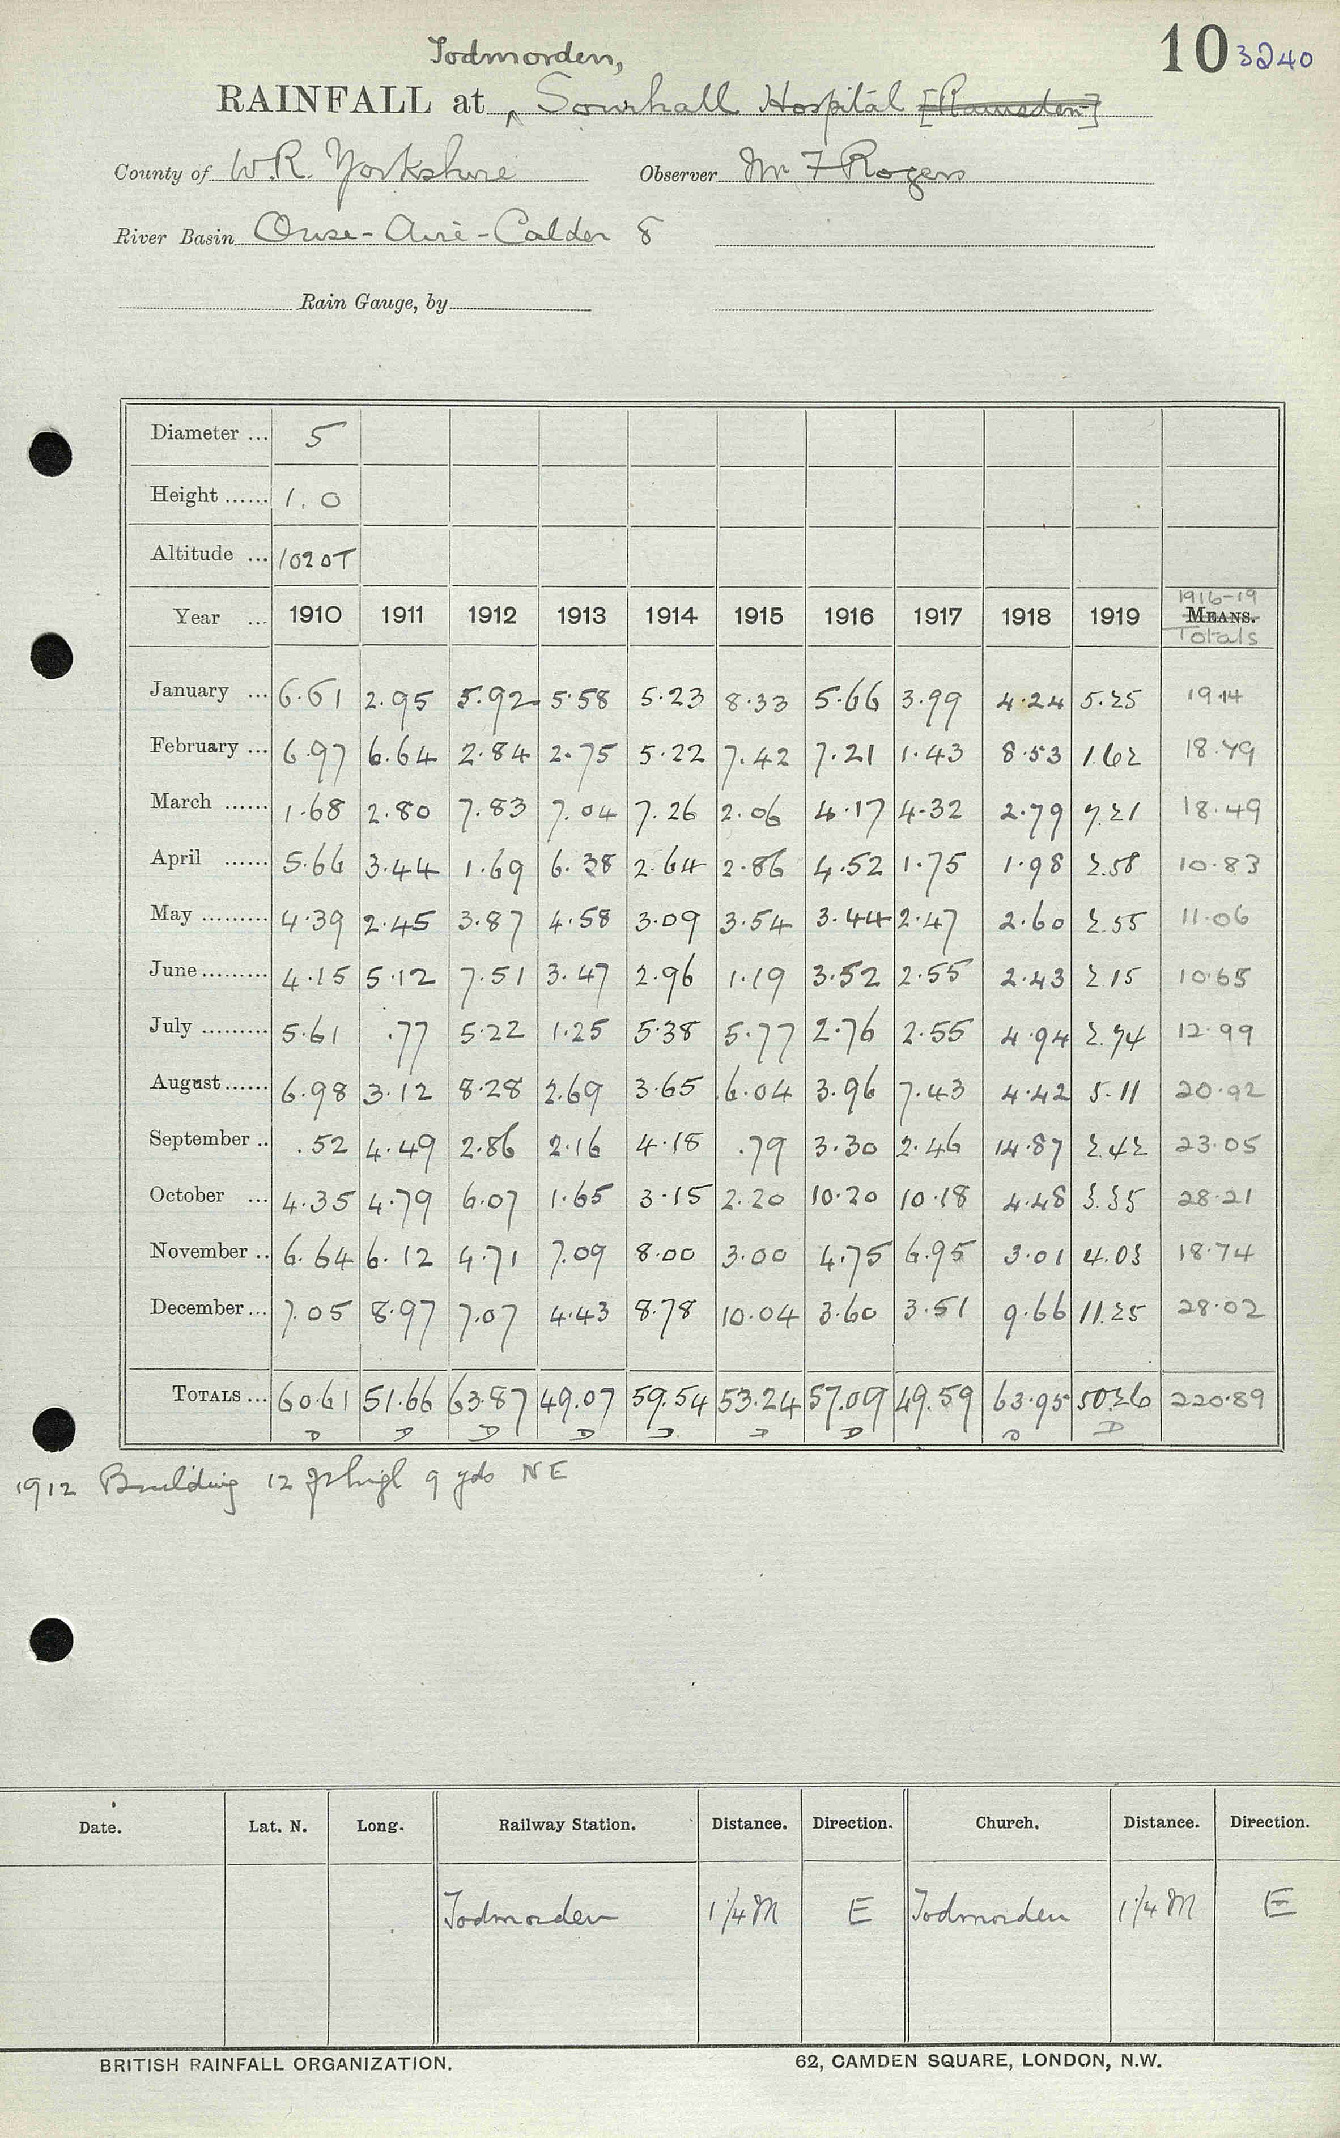 10 3240
Todmorden,
RAINFALL at ^ Sourhall Hospital [Ramsden]
County of W.R. Yorkshire Observer Mr F Rogers
River Basin Ouse-Aire-Calder 8
Rain Gauge, by
Diameter ... 5
Height ...... 1.0
Altitude ... 1020T
1916-19
Year ... 1910 1911 1912 1913 1914 1915 1916 1917 1918 1919 MEANS.
Totals
January ... 6.61 2.95 5.92 5.58 5.23 8.33 5.66 3.99 4.24 5.25 19.14
February ... 6.97 6.64 2.84 2.75 5.22 7.42 7.21 1.43 8.53 1.62 18.79
March ...... 1.68 2.80 7.83 7.04 7.26 2.06 4.17 4.32 2.79 7.21 18.49
April ...... 5.66 3.44 1.69 6.38 2.64 2.86 4.52 1.75 1.98 2.58 10.83
May ......... 4.39 2.45 3.87 4.58 3.09 3.54 3.44 2.47 2.60 2.55 11.06
June ......... 4.15 5.12 7.51 3.47 2.96 1.19 3.52 2.55 2.43 2.15 10.65
July ......... 5.61 .77 5.22 1.25 5.38 5.77 2.76 2.55 4.94 2.74 12.99
August ...... 6.98 3.12 8.28 2.69 3.65 6.04 3.96 7.43 4.42 5.11 20.92
September .. .52 4.49 2.86 2.16 4.18 .79 3.30 2.46 14.87 2.42 23.05
October ... 4.35 4.79 6.07 1.65 3.15 2.20 10.20 10.18 4.48 3.35 28.21
November .. 6.64 6.12 4.71 7.09 8.00 3.00 4.75 6.95 3.01 4.03 18.74
December ... 7.05 8.97 7.07 4.43 8.78 10.04 3.60 3.51 9.66 11.25 28.02
TOTALS ... 60.61 51.66 63.87 49.07 59.54 53.24 57.09 49.59 63.95 50.26 220.89
D D D D D D D D D
1912 Building 12 ft high 9 yds NE
Date. Lat. N. Long. Railway Station. Distance. Direction. Church. Distance. Direction.
Todmorden 1 1/4 M E Todmorden 1 1/4 M E
BRITISH RAINFALL ORGANIZATION. 62, CAMDEN SQUARE, LONDON, N.W.